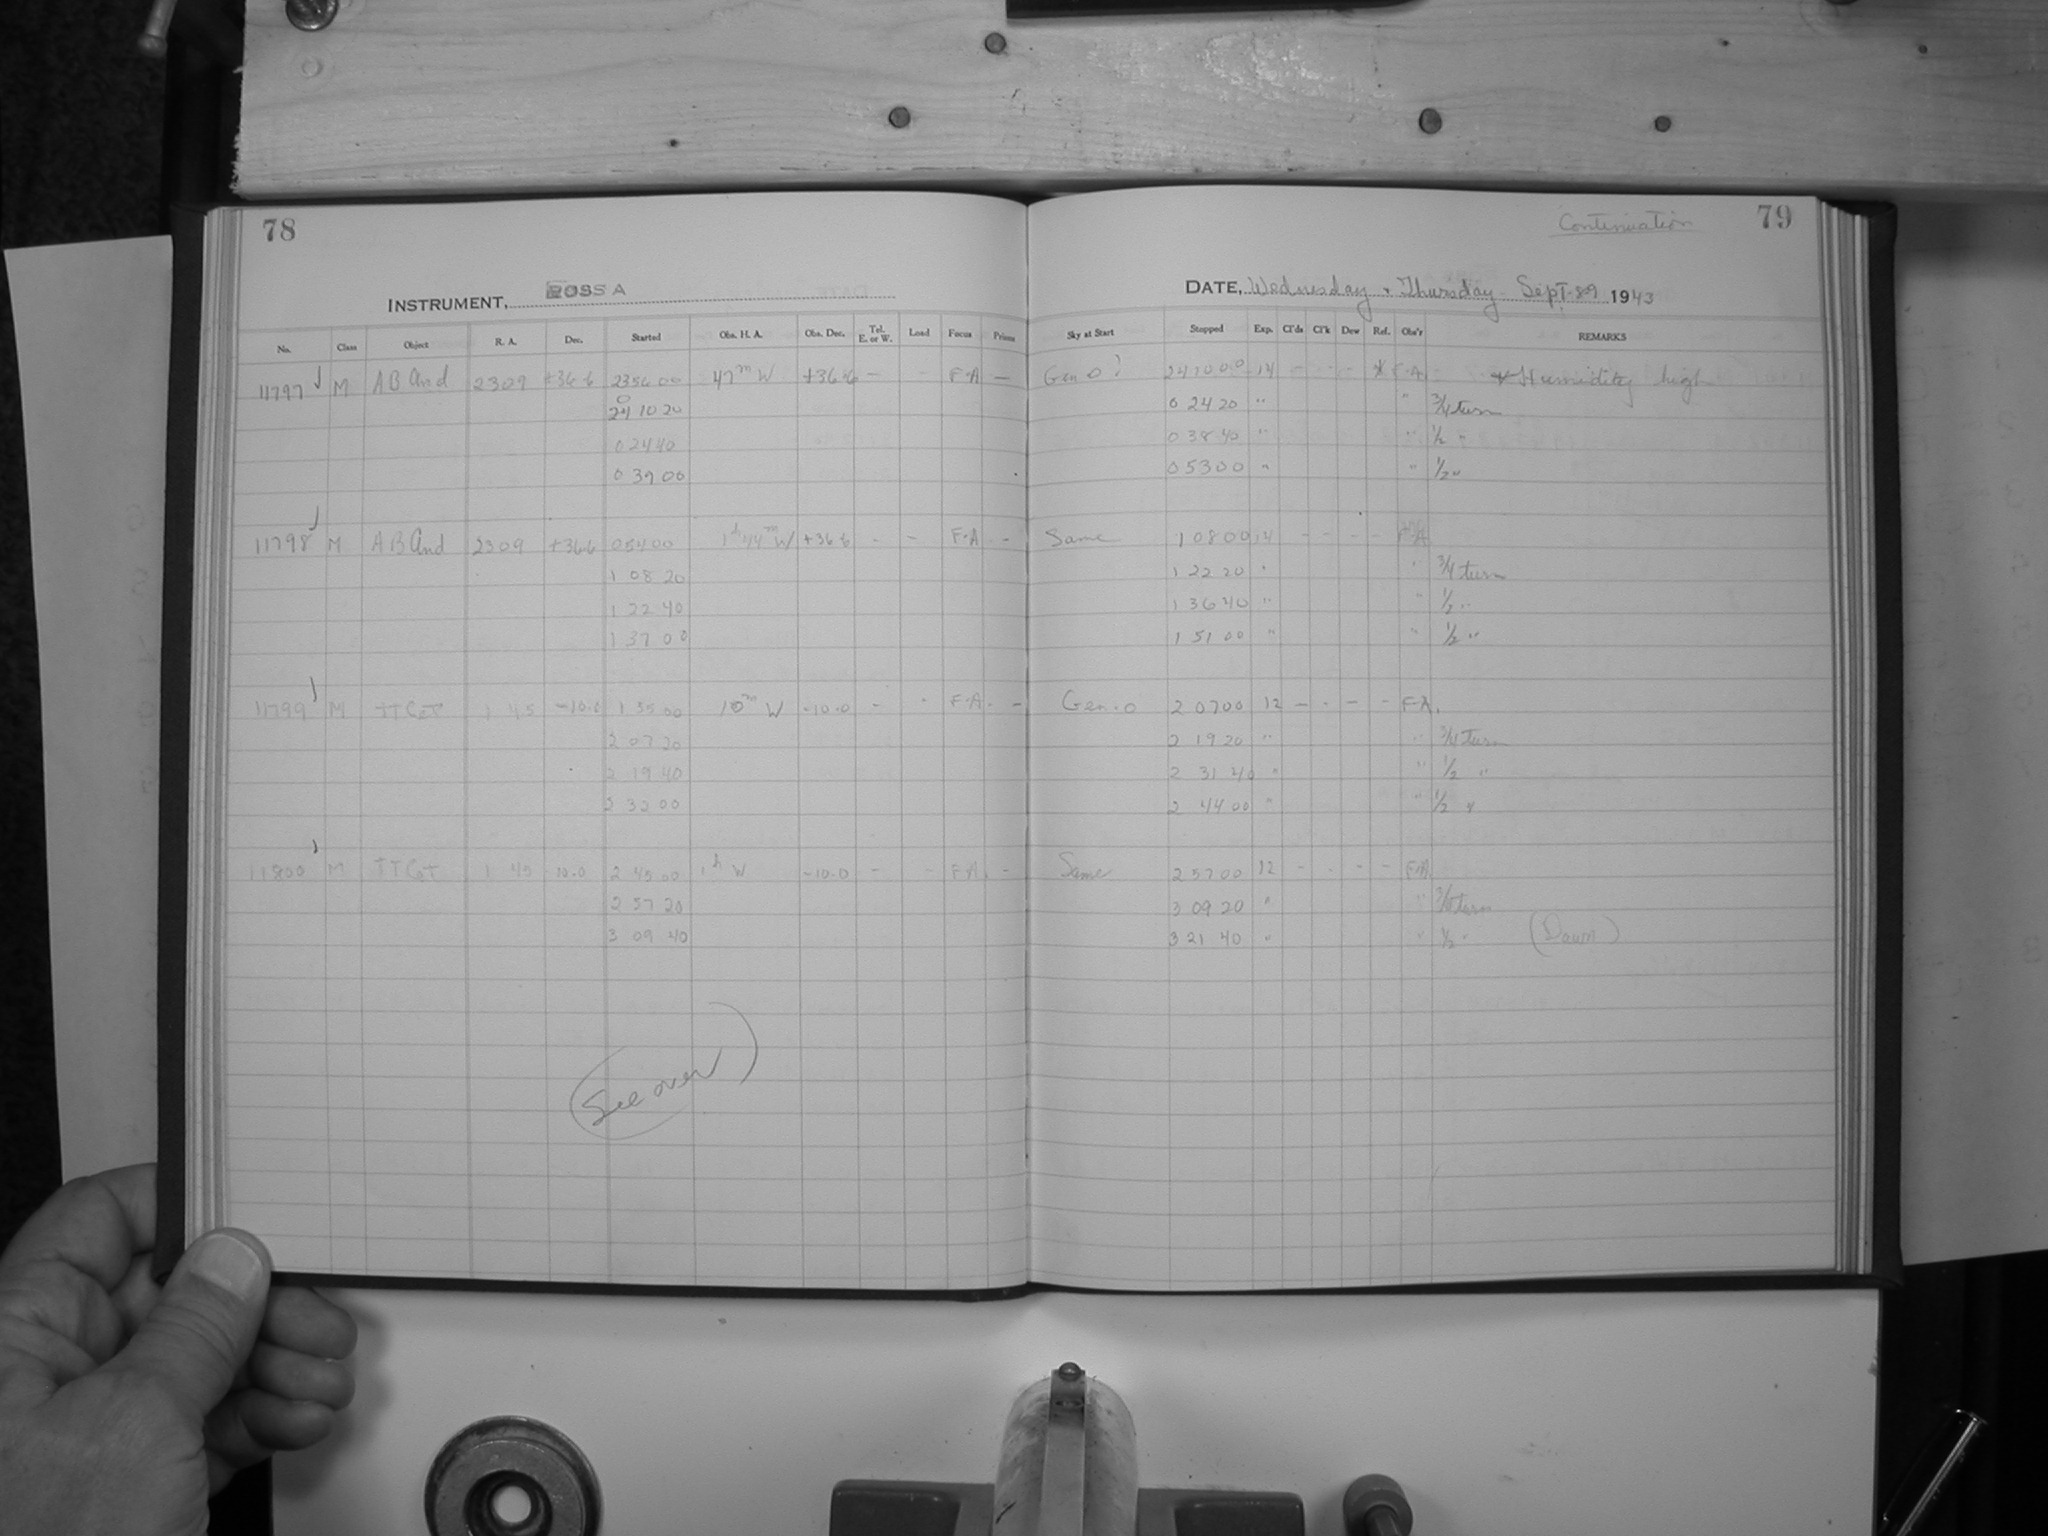 78
Continuation 79
INSTRUMENT, ROSS A
DATE, Wednesday & Thursday Sept. 8&9 1943
No. Class Object R. A. Dec. Started Obs. H. A. Obs. Dec. Tel. E. or W. Load Focus Prisms Sky at Start Stopped Exp. Cl'ds Cl'k Dew Ref. Obs'r REMARKS
11797 M AB And 2309 +36.6 235600 47m W +36.6 - - F.A - Gen 0 14 - - - * F.A * Humidity high
10 20 0 24 20 " " 3/4 turn
0 24 40 0 38 40 " " 1/2 "
0 39 00 0 53 00 " " 1/2 "
11798 M AB And 2309 +36.6 0 54 00 1h 44m W +36.6 - - F.A - Same 1 08 00 14 - - - - F.A
1 08 20 1 22 20 " " 3/4 turn
1 22 40 1 36 40 " " 1/2 "
1 37 00 1 51 00 " " 1/2 "
11799 M TT Cet 1 45 -10.0 1 55 00 10m W -10.0 - - F.A. - Gen. 0 2 07 00 12 - - - - F.A.
2 07 20 2 19 20 " " 3/4 turn
2 19 40 2 31 40 " " 1/2 "
2 32 00 2 44 00 " " 1/2 "
11800 M TT Cet 1 45 10.0 2 45 00 1h W -10.0 - - F.A. - Same 2 57 00 12 - - - - F.A
2 57 20 3 09 20 " " 3/4 turn
3 09 40 3 21 40 " " 1/2 " (Dawn)
(See over)